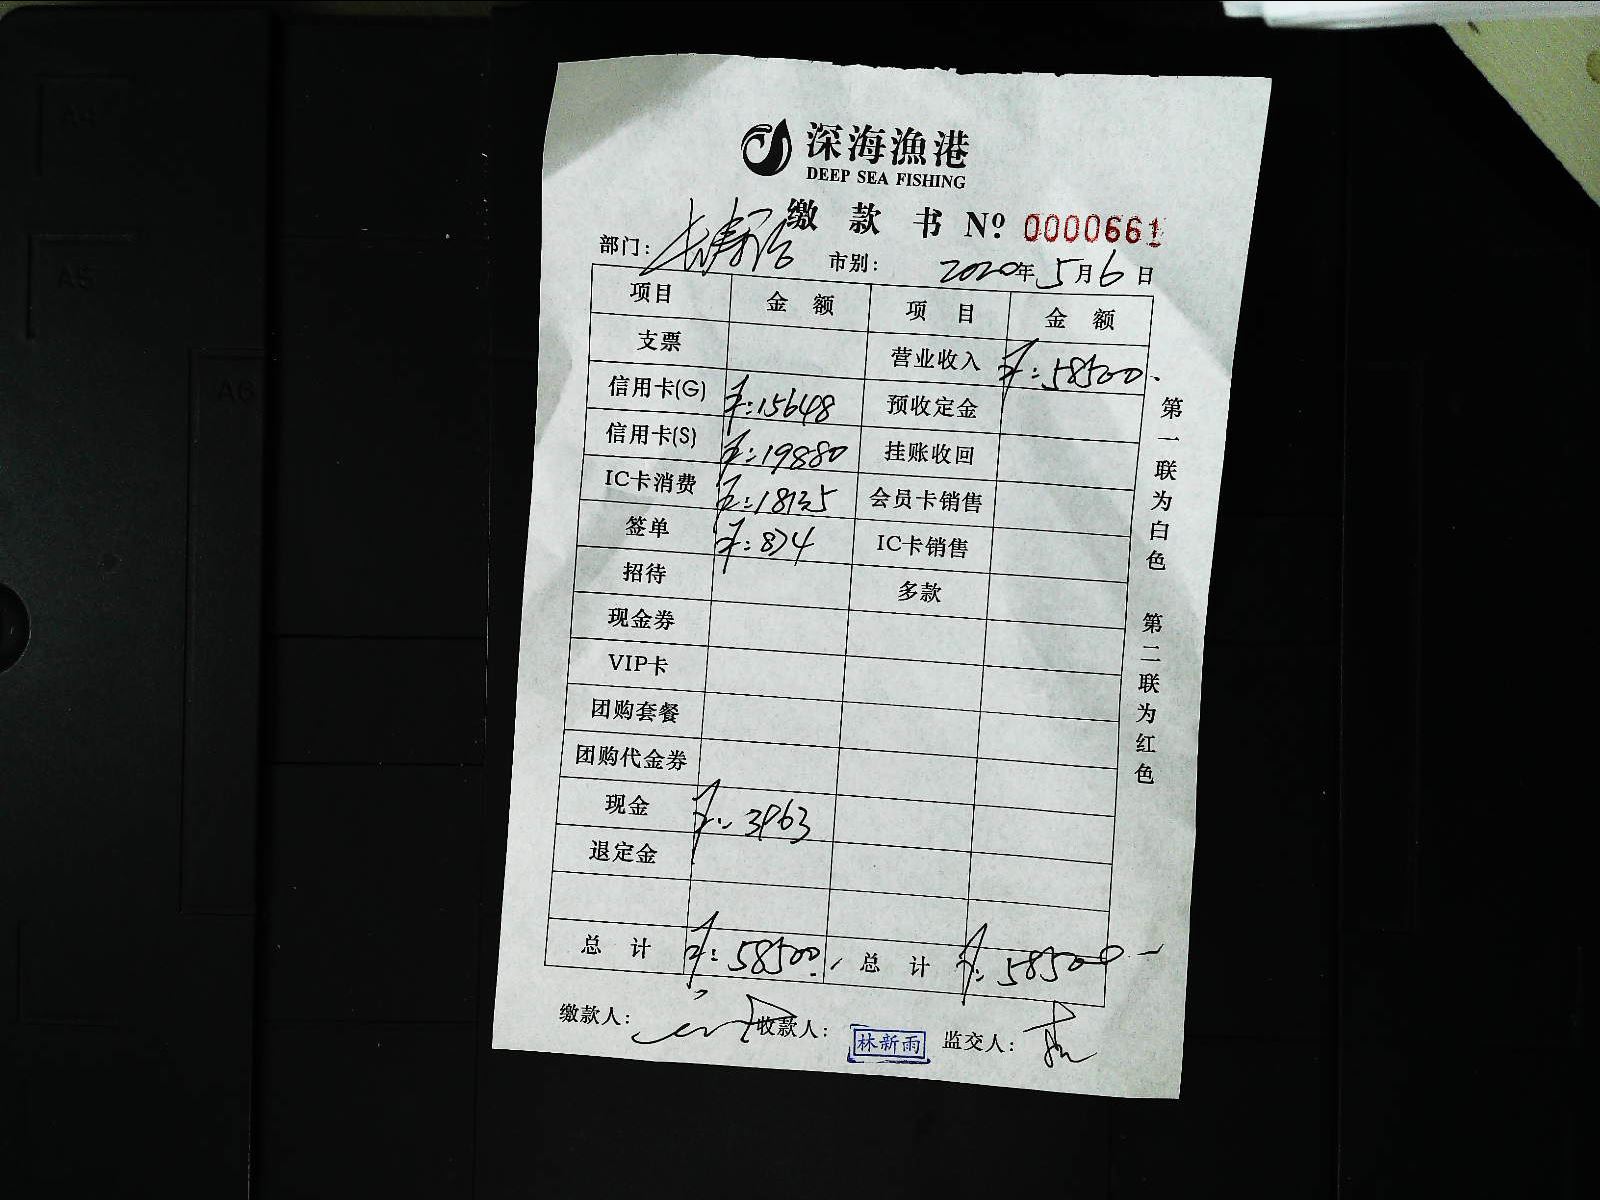 A4
A5
A6
深海漁港
DEEP SEA FISHING
缴款书 Nº 0000661
部门：长寿路 市别： 2020年5月6日
项目 金额 项目 金额
支票 营业收入 ¥:58500.
信用卡(G) ¥:15648 预收定金
信用卡(S) ¥:19880 挂账收回
IC卡消费 ¥:18135 会员卡销售
签单 ¥:874 IC卡销售
招待 多款
现金券
VIP卡
团购套餐
团购代金券
现金 ¥:3963
退定金
总计 ¥:58500. 总计 ¥:58500.-
缴款人： 收款人：林新雨 监交人：
第一联为白色 第二联为红色